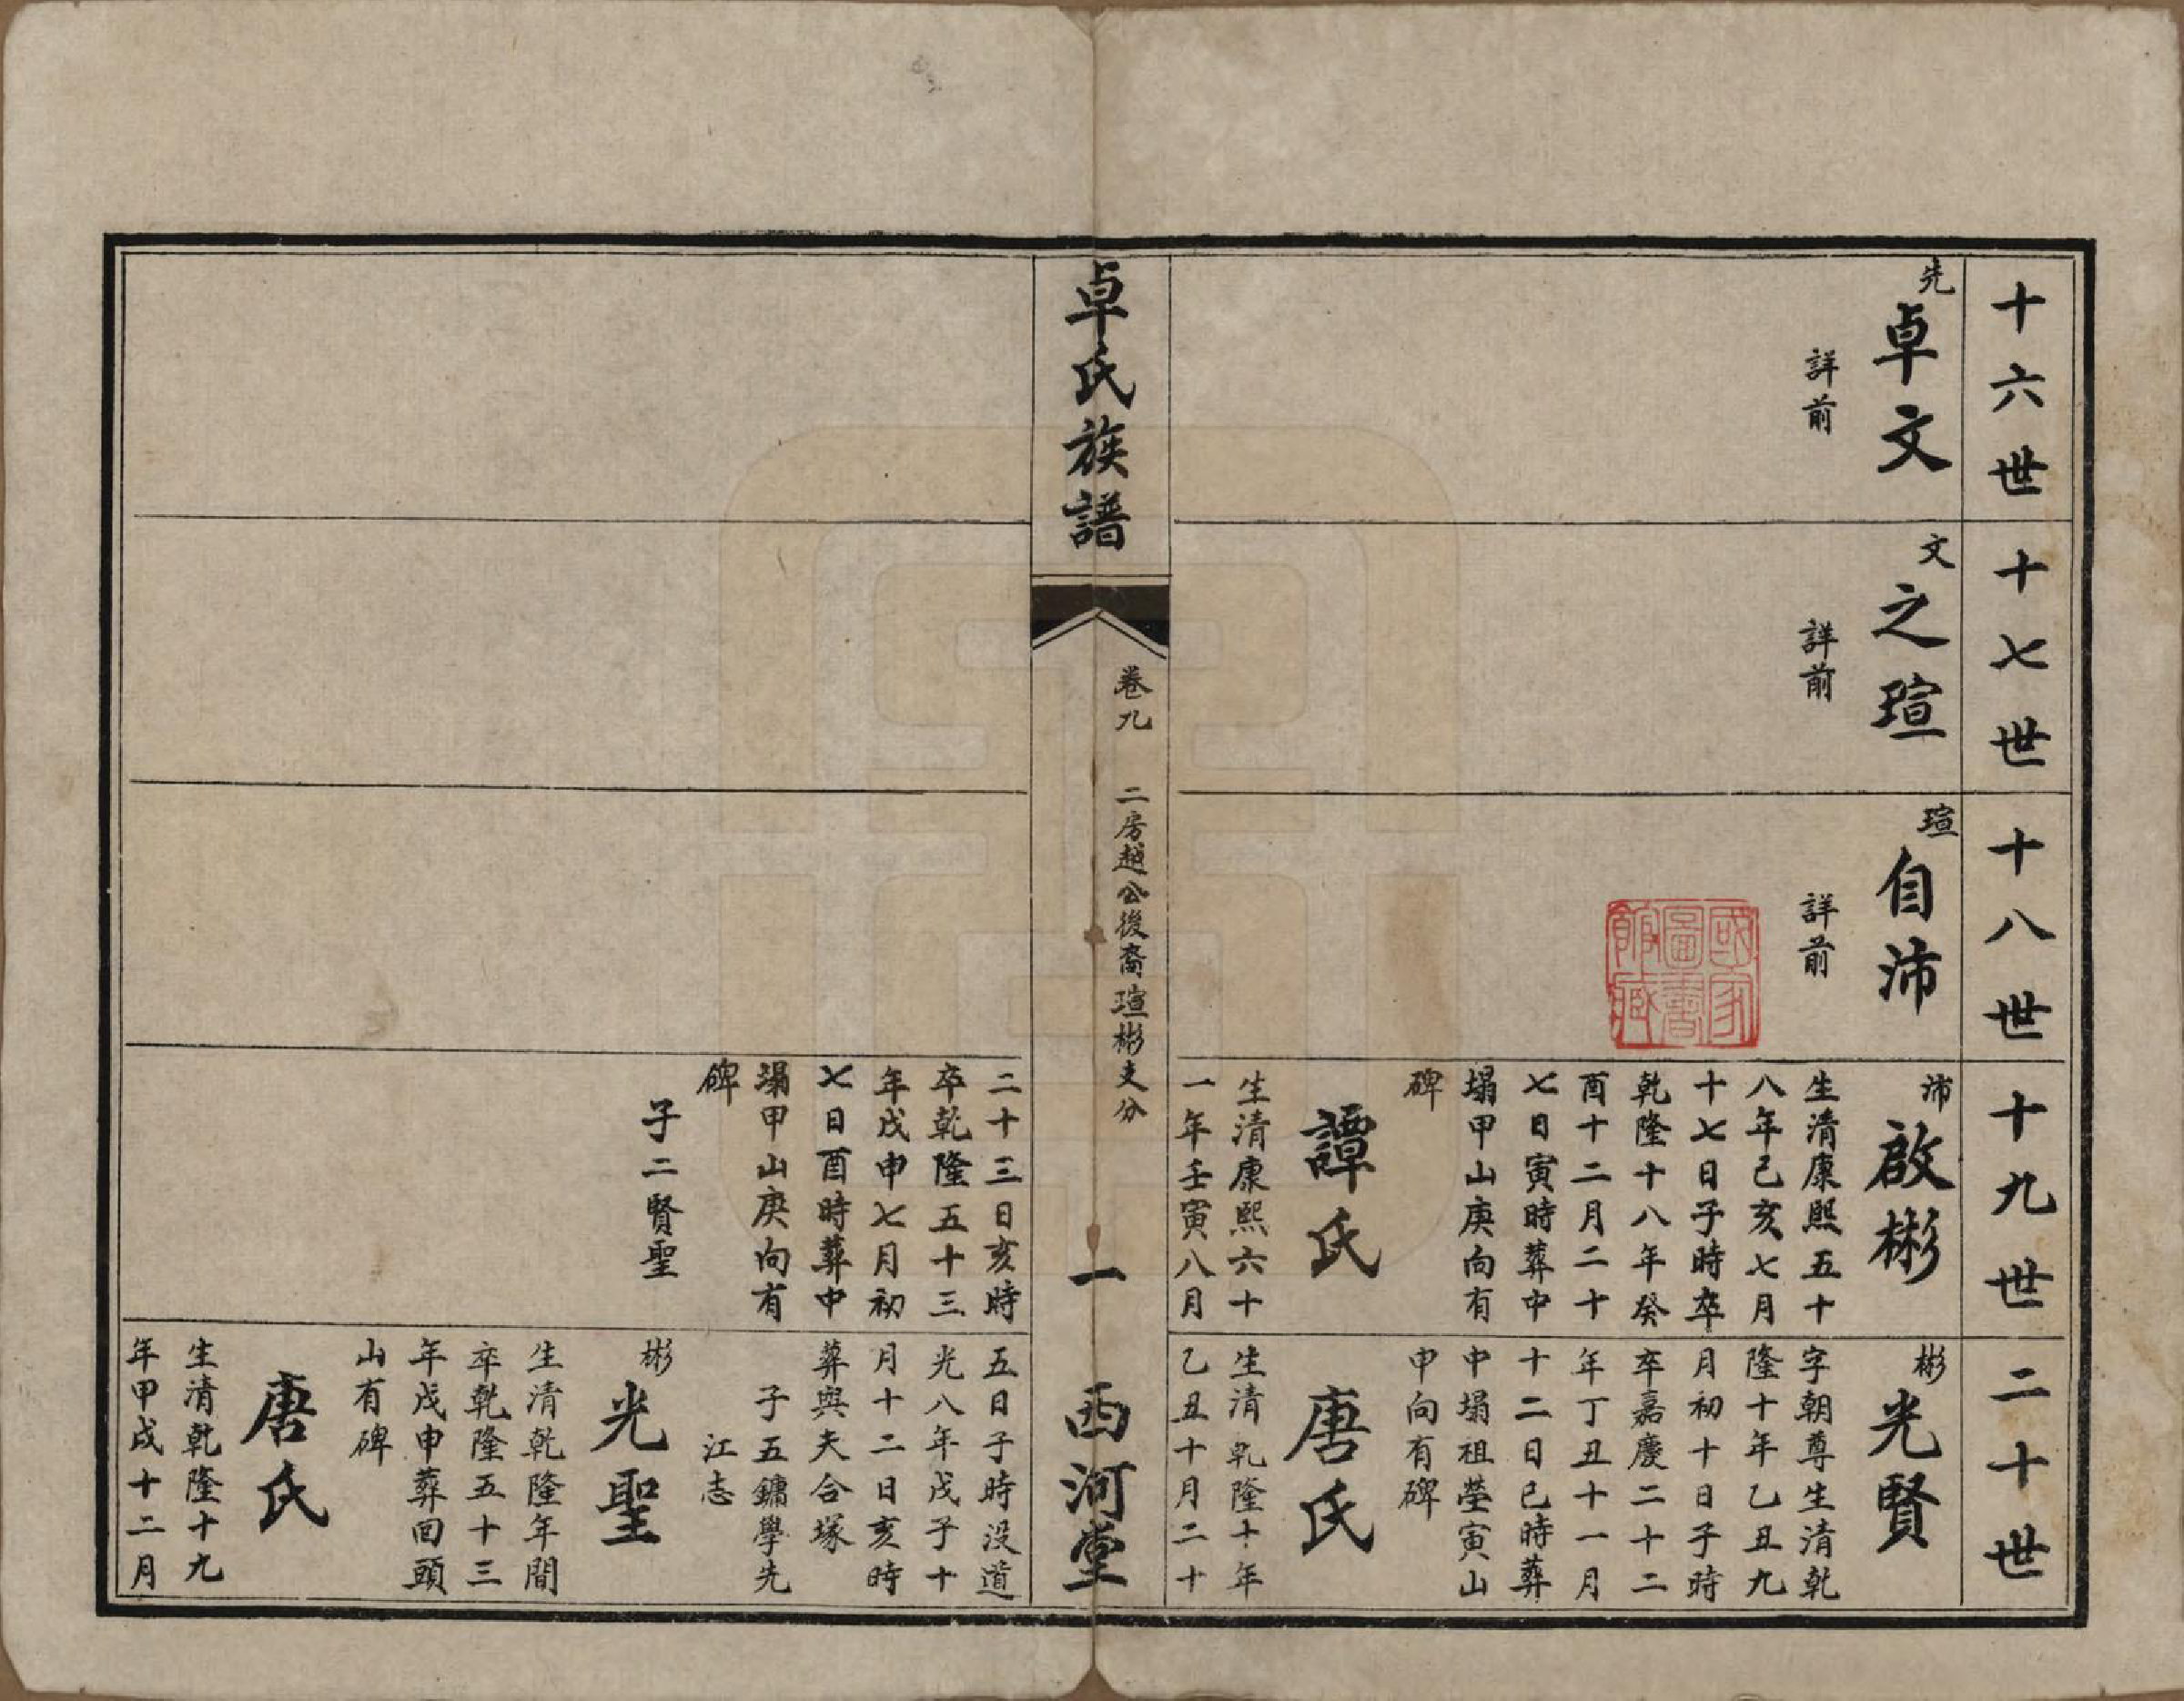 十六世
先
卓文
詳前
十七世
文
之瑄
詳前
十八世
瑄
自沛
詳前
十九世
沛
啟彬
生清康熙五十
八年己亥七月
十七日子時卒
乾隆十八年癸
酉十二月二十
七日寅時葬中
塌甲山庚向有
碑
譚氏
生清康熙六十
一年壬寅八月
二十世
彬
光賢
字朝尊生清乾
隆十年乙丑九
月初十日子時
卒嘉慶二十二
年丁丑十一月
十二日巳時葬
中塌祖塋寅山
申向有碑
唐氏
生清乾隆十年
乙丑十月二十
國家圖書館藏
卓氏族譜
卷九
二房越公後裔瑄彬支分
一
西河堂
二十三日亥時
卒乾隆五十三
年戊申七月初
七日酉時葬中
塌甲山庚向有
碑
子二賢聖
五日子時没道
光八年戊子十
月十二日亥時
葬與夫合塚
子五鏞學先
江志
彬
光聖
生清乾隆年間
卒乾隆五十三
年戊申葬回頭
山有碑
唐氏
生清乾隆十九
年甲戌十二月